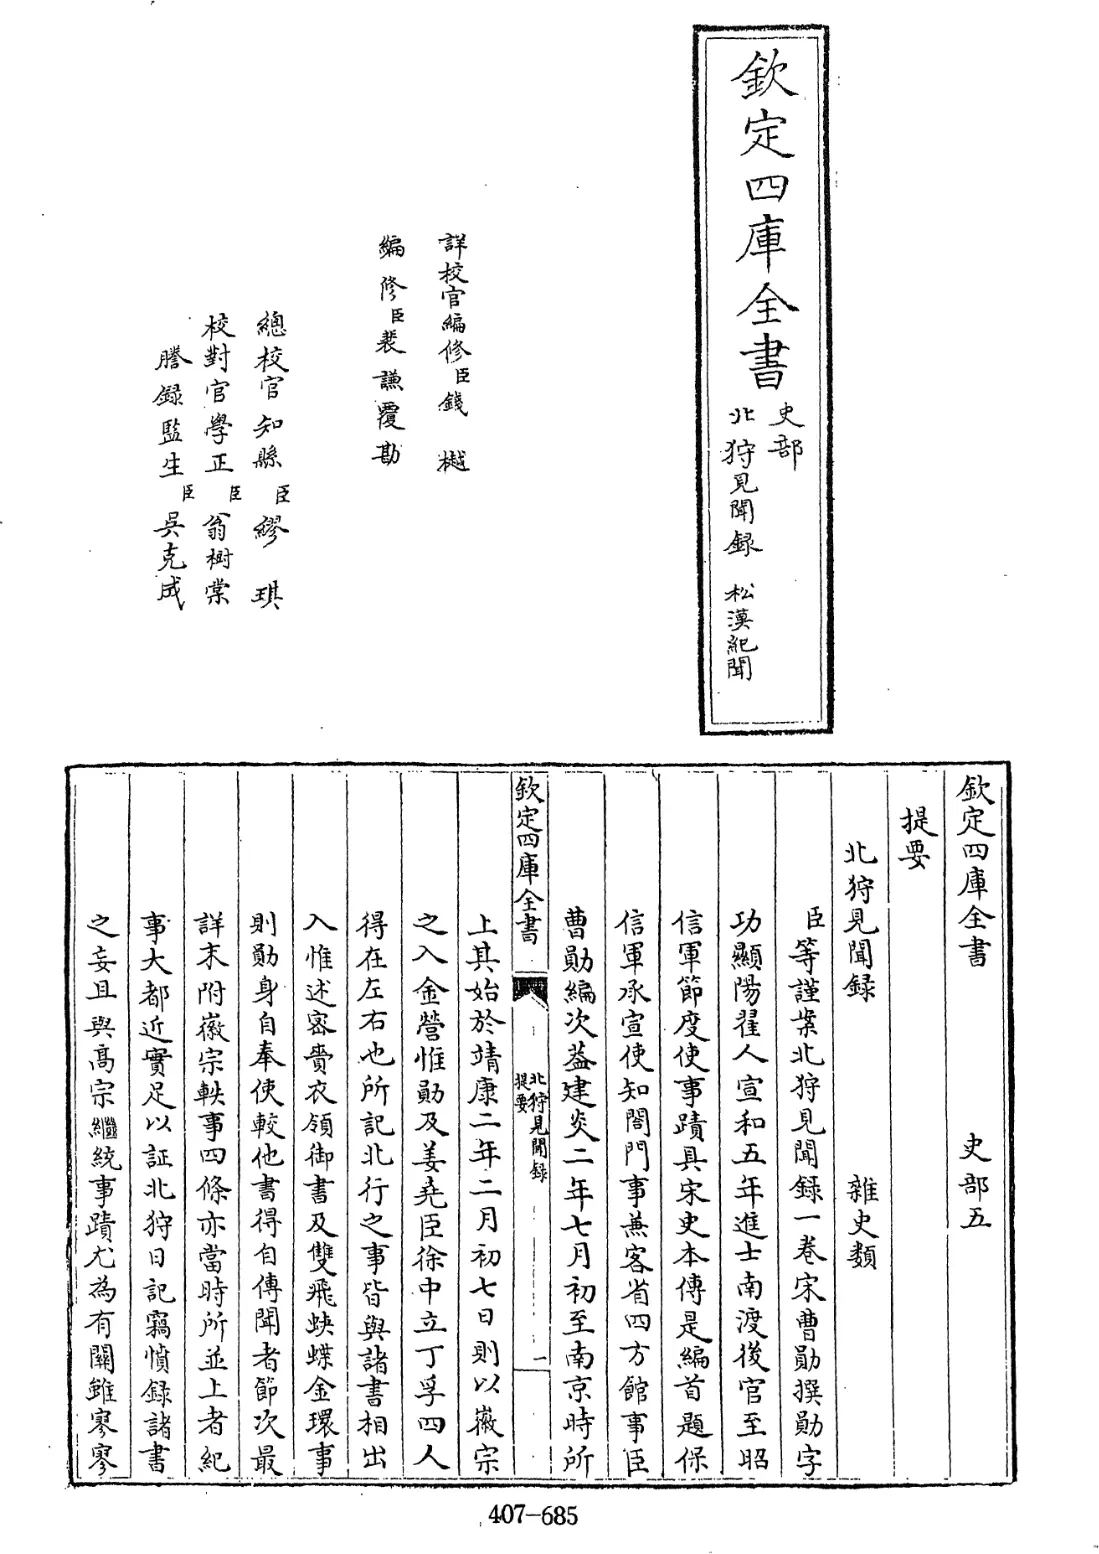 欽定四庫全書
史部
北狩見聞録 松漠紀聞
詳校官編修臣錢樾
編修臣裴謙覆勘
總校官知縣臣繆琪
校對官學正臣翁樹棠
謄録監生臣吳克成
欽定四庫全書 史部五
提要
北狩見聞録 雜史類
臣等謹案北狩見聞録一卷宋曹勛撰勛字
功顯陽翟人宣和五年進士南渡後官至昭
信軍節度使事蹟具宋史本傳是編首題保
信軍承宣使知閤門事兼客省四方館事臣
曹勛編次蓋建炎二年七月初至南京時所
欽定四庫全書
北狩見聞録
提要
一
上其始於靖康二年二月初七日則以徽宗
之入金營惟勛及姜堯臣徐中立丁孚四人
得在左右也所記北行之事皆與諸書相出
入惟述密賫衣領御書及雙飛蛺蝶金環事
則勛身自奉使較他書得自傳聞者節次最
詳末附徽宗軼事四條亦當時所並上者紀
事大都近實足以証北狩日記竊憤錄諸書
之妄且與高宗繼統事蹟尤為有關雖寥寥
407-685